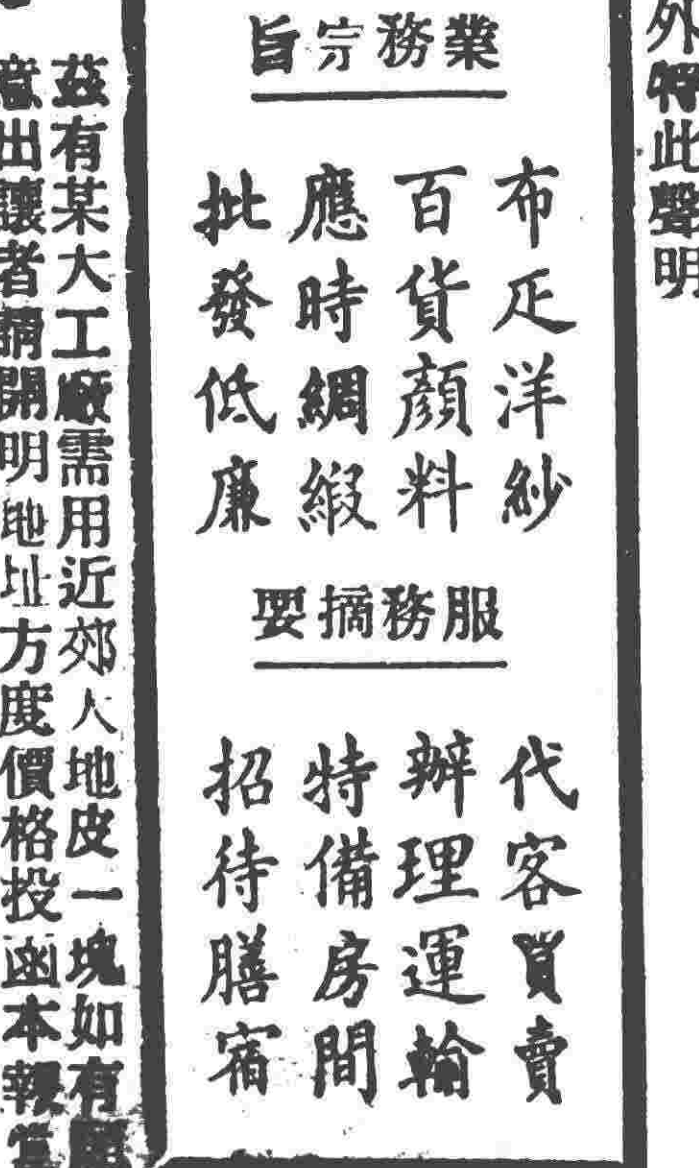 外特此聲明
業務宗旨
布疋洋紗
百貨顏料
應時綢緞
批發低廉
服務摘要
代客買賣
辦理運輸
特備房間
招待膳宿
茲有某大工廠需用近郊大地皮一塊如有願
意出讓者請開明地址方度價格投函本報